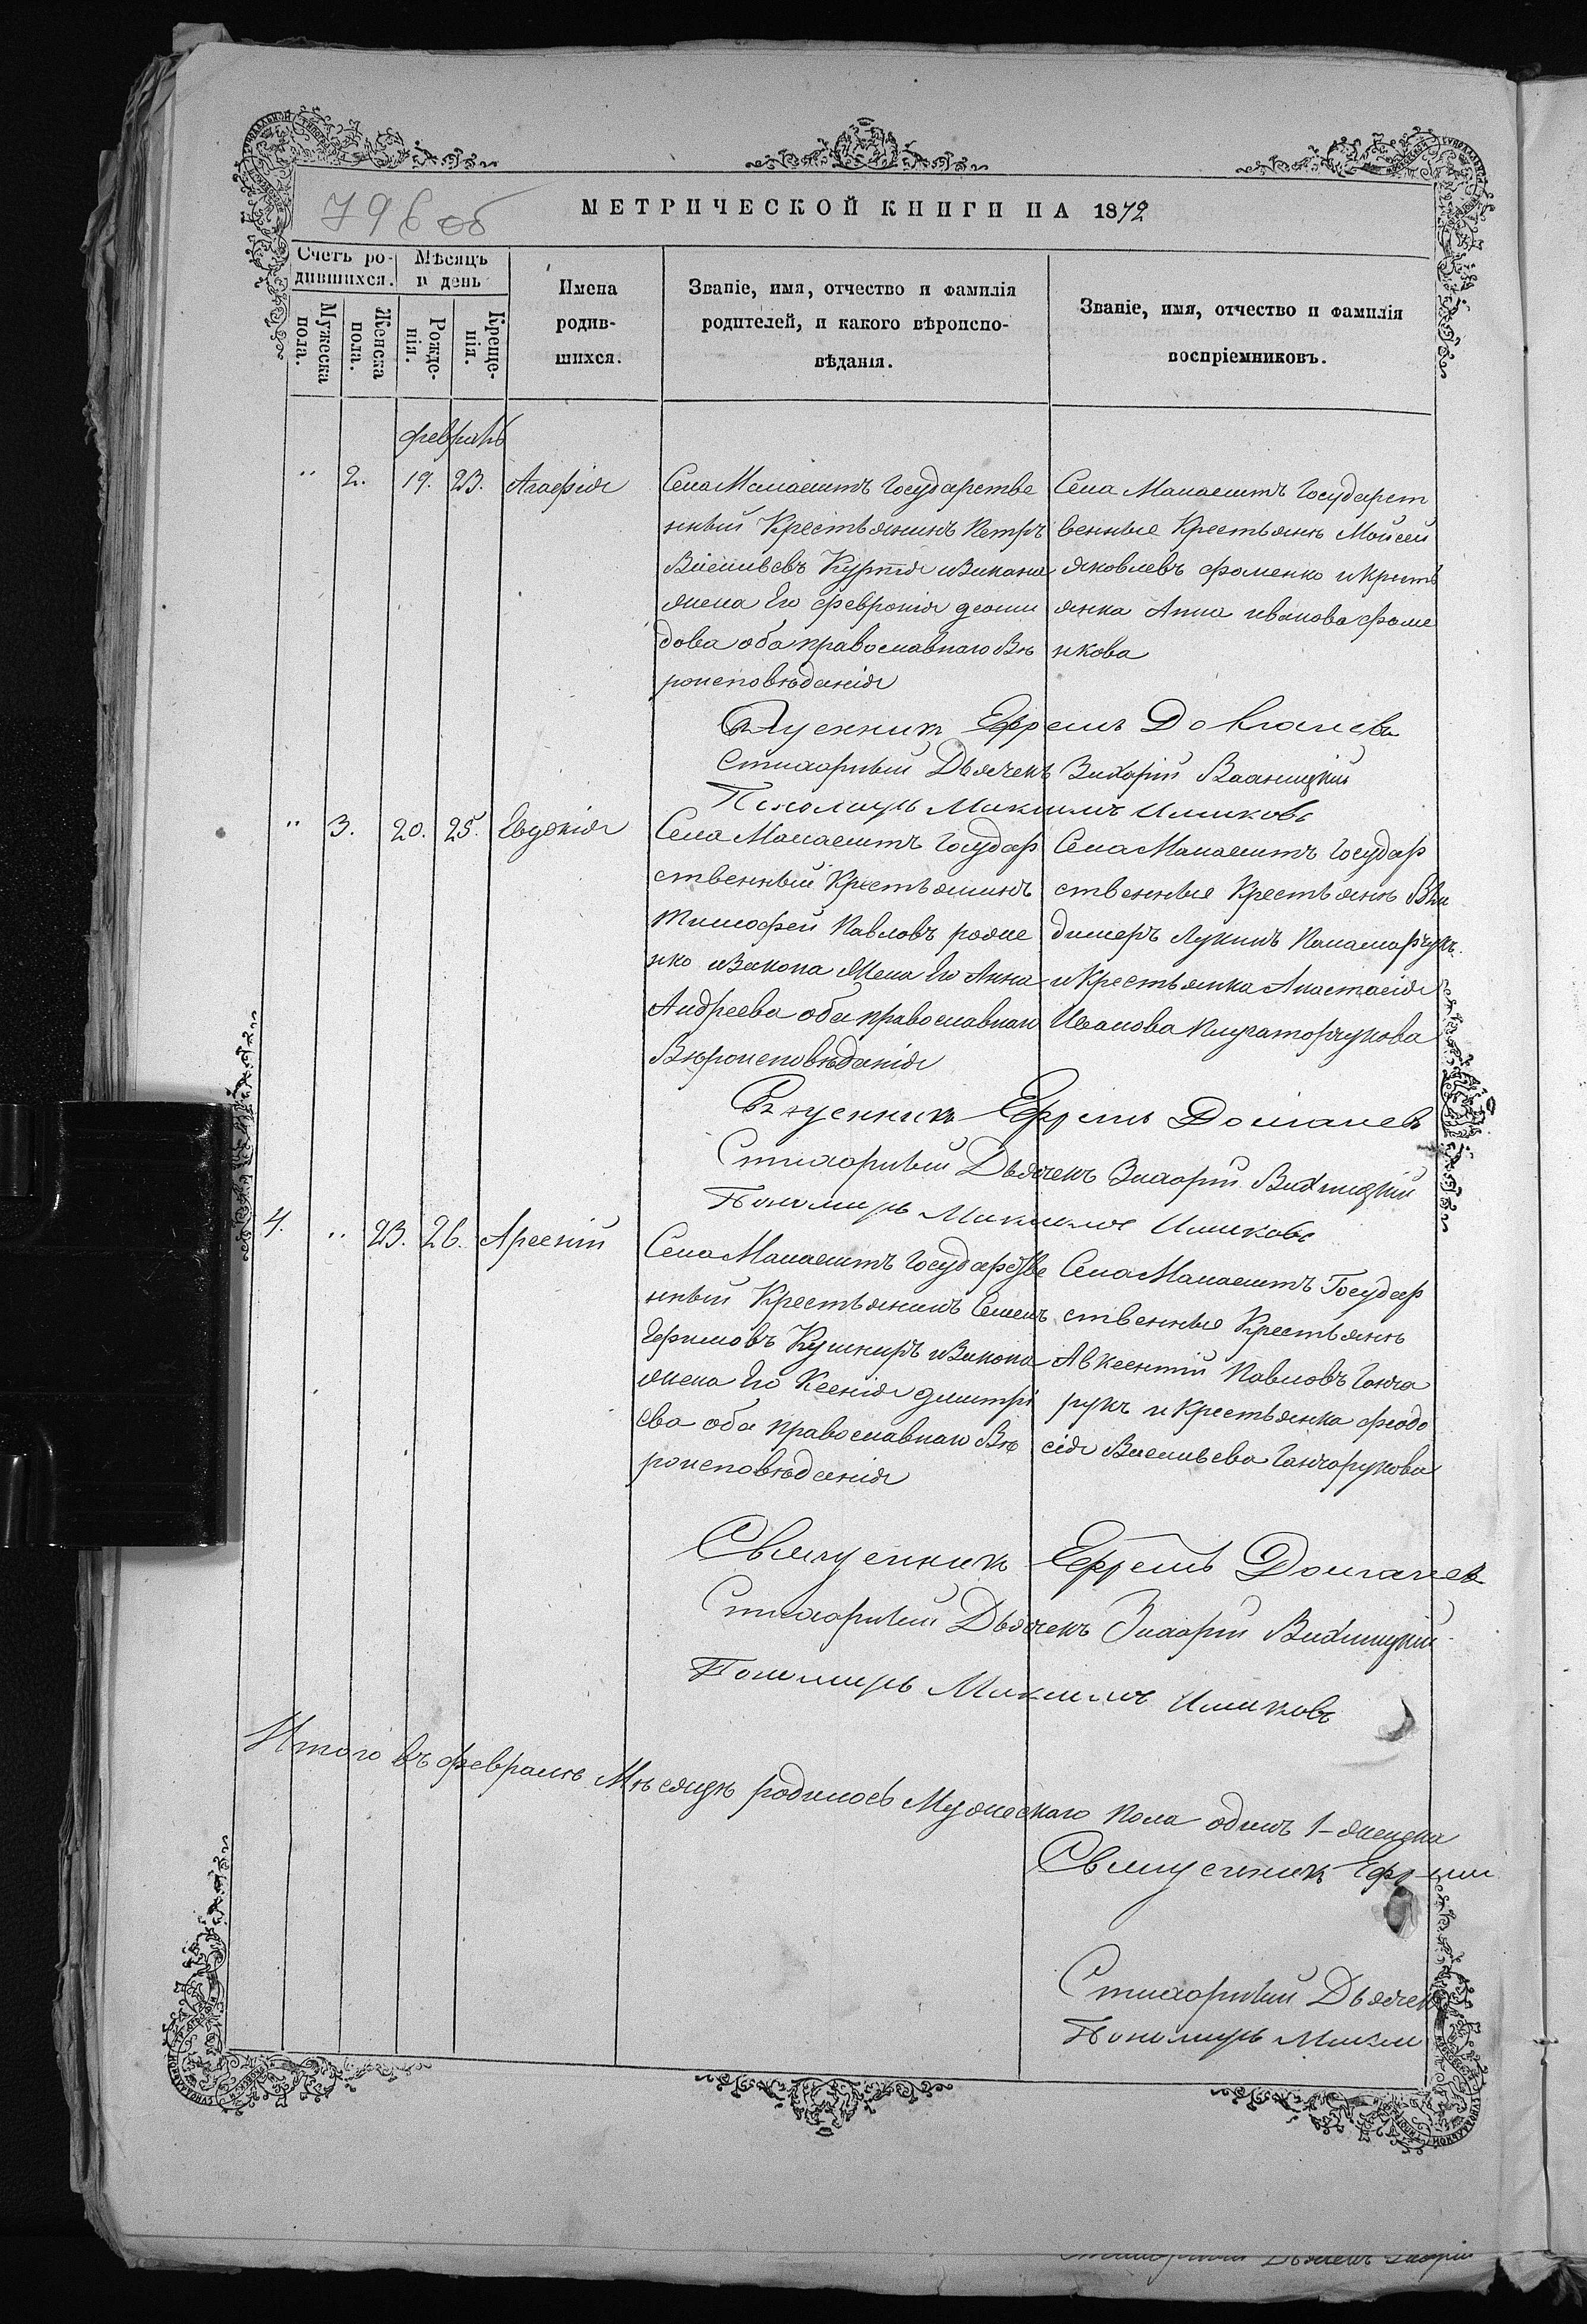 796 об
МЕТРИЧЕСКОЙ КНИГИ НА 1872
Счетъ ро-
дившихся.
Мѣсяцъ
и день
Мужеска
пола.
Женска
пола.
Рожде-
нія.
Креще-
нія.
Имена
родив-
шихся.
Званіе, имя, отчество и фамилія
родителей, и какого вѣроиспо-
вѣданія.
Званіе, имя, отчество и фамилія
воспріемниковъ.
февраль
" 2. 19. 23. Агафія
Села Манаештъ Государстве
нный Крестьянинъ Петръ
Васильевъ и Закона
жена Его Феврония
дова оба православнаго Вѣ
роисповѣданія
Села Манаештъ Государст
венные Крестьяне Мойсей
Яковлевъ Фоменко и Крестъ
янка Анна иванова Фоме
нкова
Священникъ Ефремъ
Стихарный Дьячекъ Захарій
Пономарь Максимъ
" 3. 20. 25. Евдокія
Села Манаештъ Государ
ственный Крестьянинъ
Тимофей Павловъ
нко и Закона Жена Его Анна
Андреева оба православнаго
Вѣроисповѣданія
Села Манаештъ Государ
ственные Крестьяне Вла
димеръ Лукинъ Паламарчукъ
и Крестьянка Анастасія
Иванова
Священникъ Ефремъ
Стихарный Дьячекъ Захарій
Пономарь Максимъ
4. " 23. 26. Арсеній
Села Манаештъ Государстве
нный Крестьянинъ Семенъ
Ефимовъ Кушниръ и Закона
жена Его Ксенія димитрі
ева оба православнаго Вѣ
роисповѣданія
Села Манаештъ Государ
ственные Крестьяне
Авксентій Павловъ Ганча
рукъ и Крестьянка Феодо
сія Васильева Ганчарукова
Священникъ Ефремъ
Стихарный Дьячекъ Захарій
Пономарь Максимъ
Итого въ феврале Мѣсяцѣ родилось Мужескаго пола одинъ 1-женска
Священникъ Ефрем
Стихарный Дьячек
Пономарь Макси
Стихарный Дьячекъ Захарій